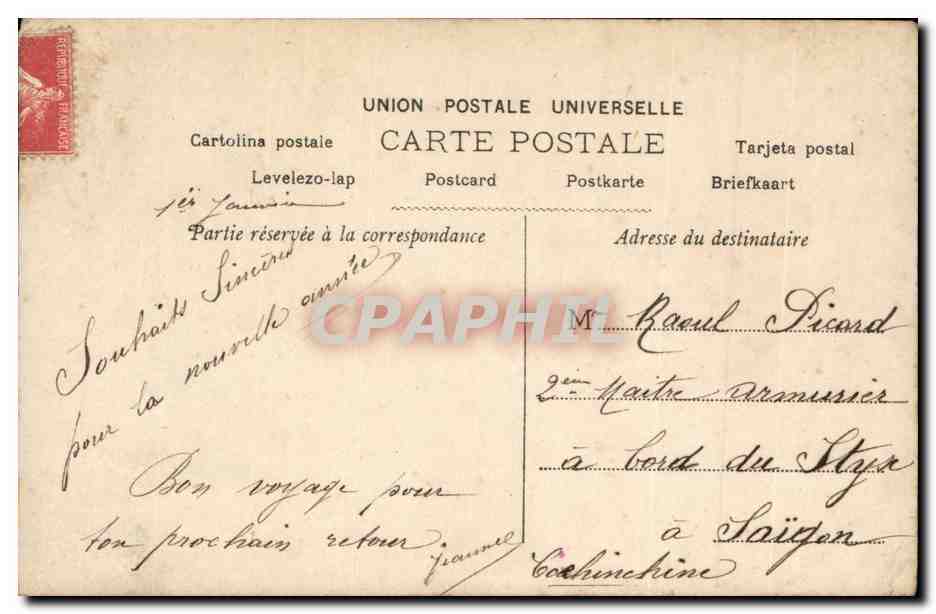 REPUBLIQUE FRANÇAISE
UNION POSTALE UNIVERSELLE
Cartolina postale CARTE POSTALE Tarjeta postal
Levelezo-lap Postcard Postkarte Briefkaart
1er Janvier
Partie réservée à la correspondance
Souhaits Sincères
pour la nouvelle année
Bon voyage pour
ton prochain retour
Jeanne
Adresse du destinataire
CPAPHIL
M Raoul Picard
2ème Maitre armurier
à bord du Styx
à Saïgon
Cochinchine